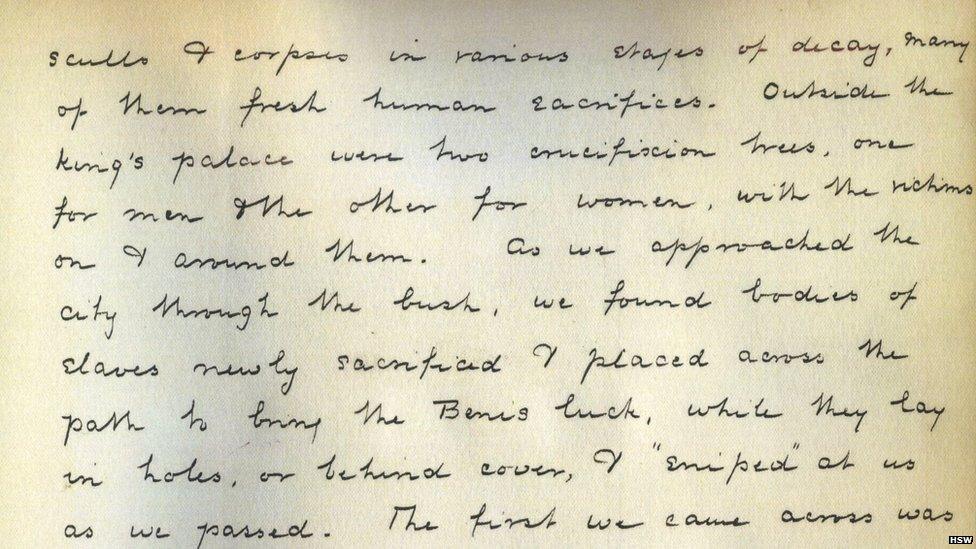 sculls & corpses in various stages of decay, many
of them fresh human sacrifices. Outside the
King's palace were two crucifixion trees, one
for men & the other for women, with the victims
on & around them. As we approached the
city through the bush, we found bodies of
slaves newly sacrificed & placed across the
path to bring the Benis luck, while they lay
in holes, or behind cover, & "sniped" at us
as we passed. The first we came across was
HSW